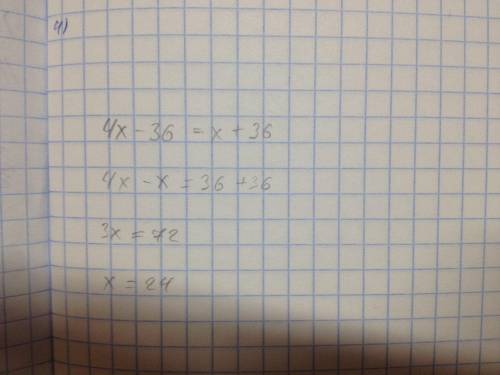 4)
4x - 36 = x + 36
4x - x = 36 + 36
3x = 72
x = 24